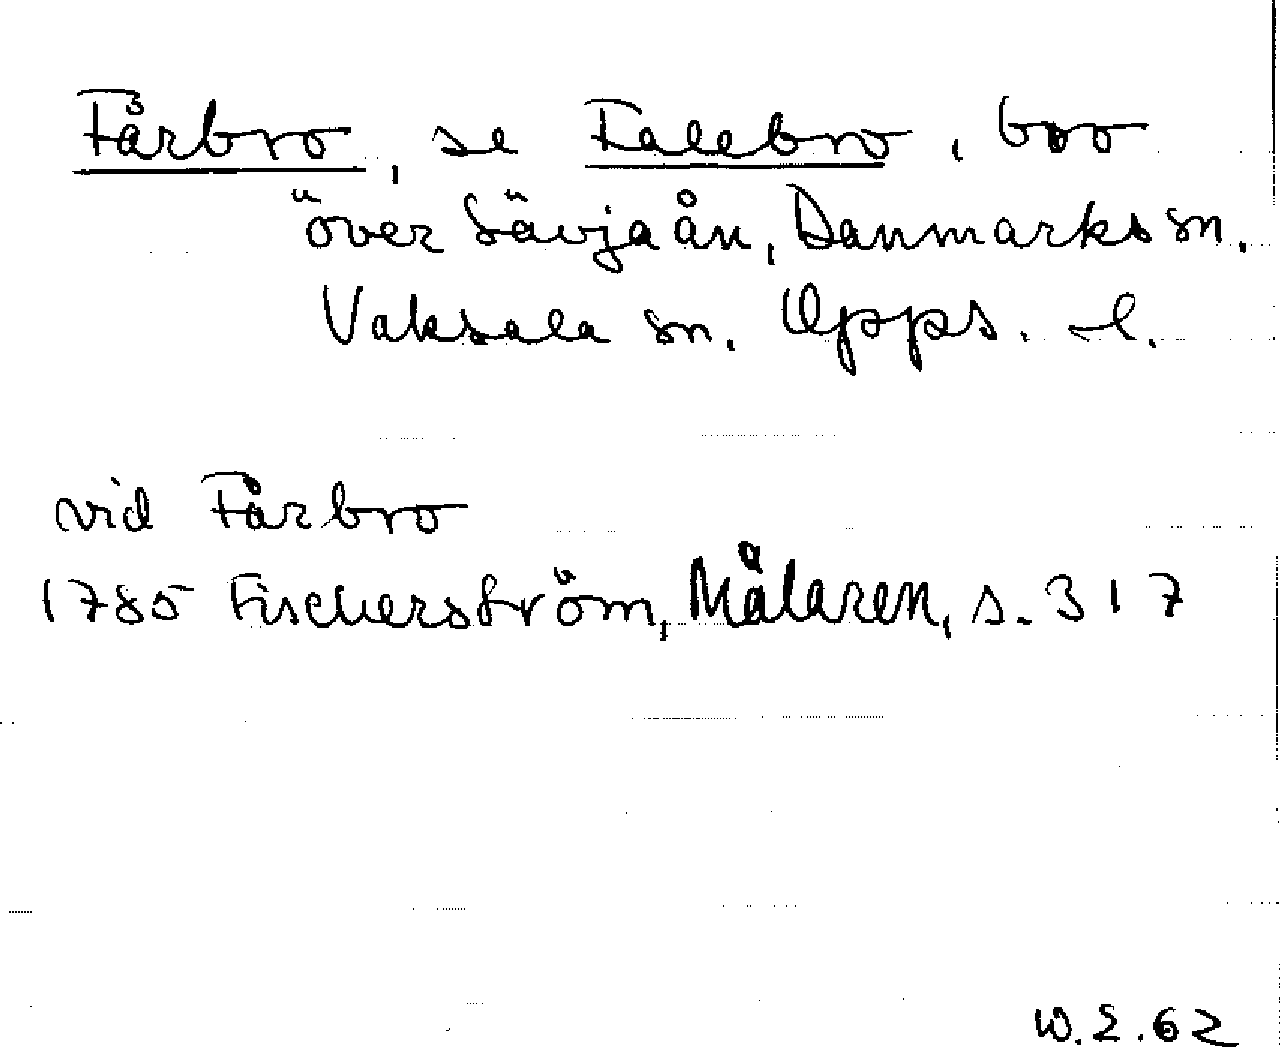 Fårbro, se Falebro, bro
över Sävjaån, Danmarks sn.
Vaksala sn. Upps. l.
vid Fårbro
1785 Fischerström, Mälaren, s. 317
W.E.62